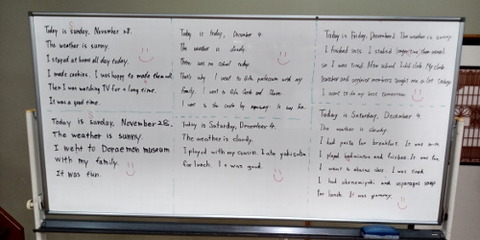 Today is Sunday, November 28.
The weather is sunny.
I stayed at home all day today.
I made cookies. I was happy to made them well.
Then I was watching TV for a long time.
It was a good time.
Today is Sunday, November 28.
The weather is sunny.
I went to Doraemon museum
with my family.
It was fun.
Today is today, December 4.
The weather is cloudy.
There was no school today.
That's why I went to with my
family. I went to and
I went to the by It was fun.
Today is Saturday, December 4.
The weather is cloudy.
I played with my cousin. I ate yakisoba
for lunch. I was good.
Today is Friday, December The weather is sunny.
I finished tests. I studied than usual.
so I was tired. After school, I did club. My club
teacher and members taught me a lot today.
I want to do my best tomorrow.
Today is Saturday, December 4.
The weather is cloudy.
I had pasta for breakfast. It was
I played badminton and frisbee. It was fun.
I went to I was tired.
I had and asparagus soup
for lunch. It was yummy.